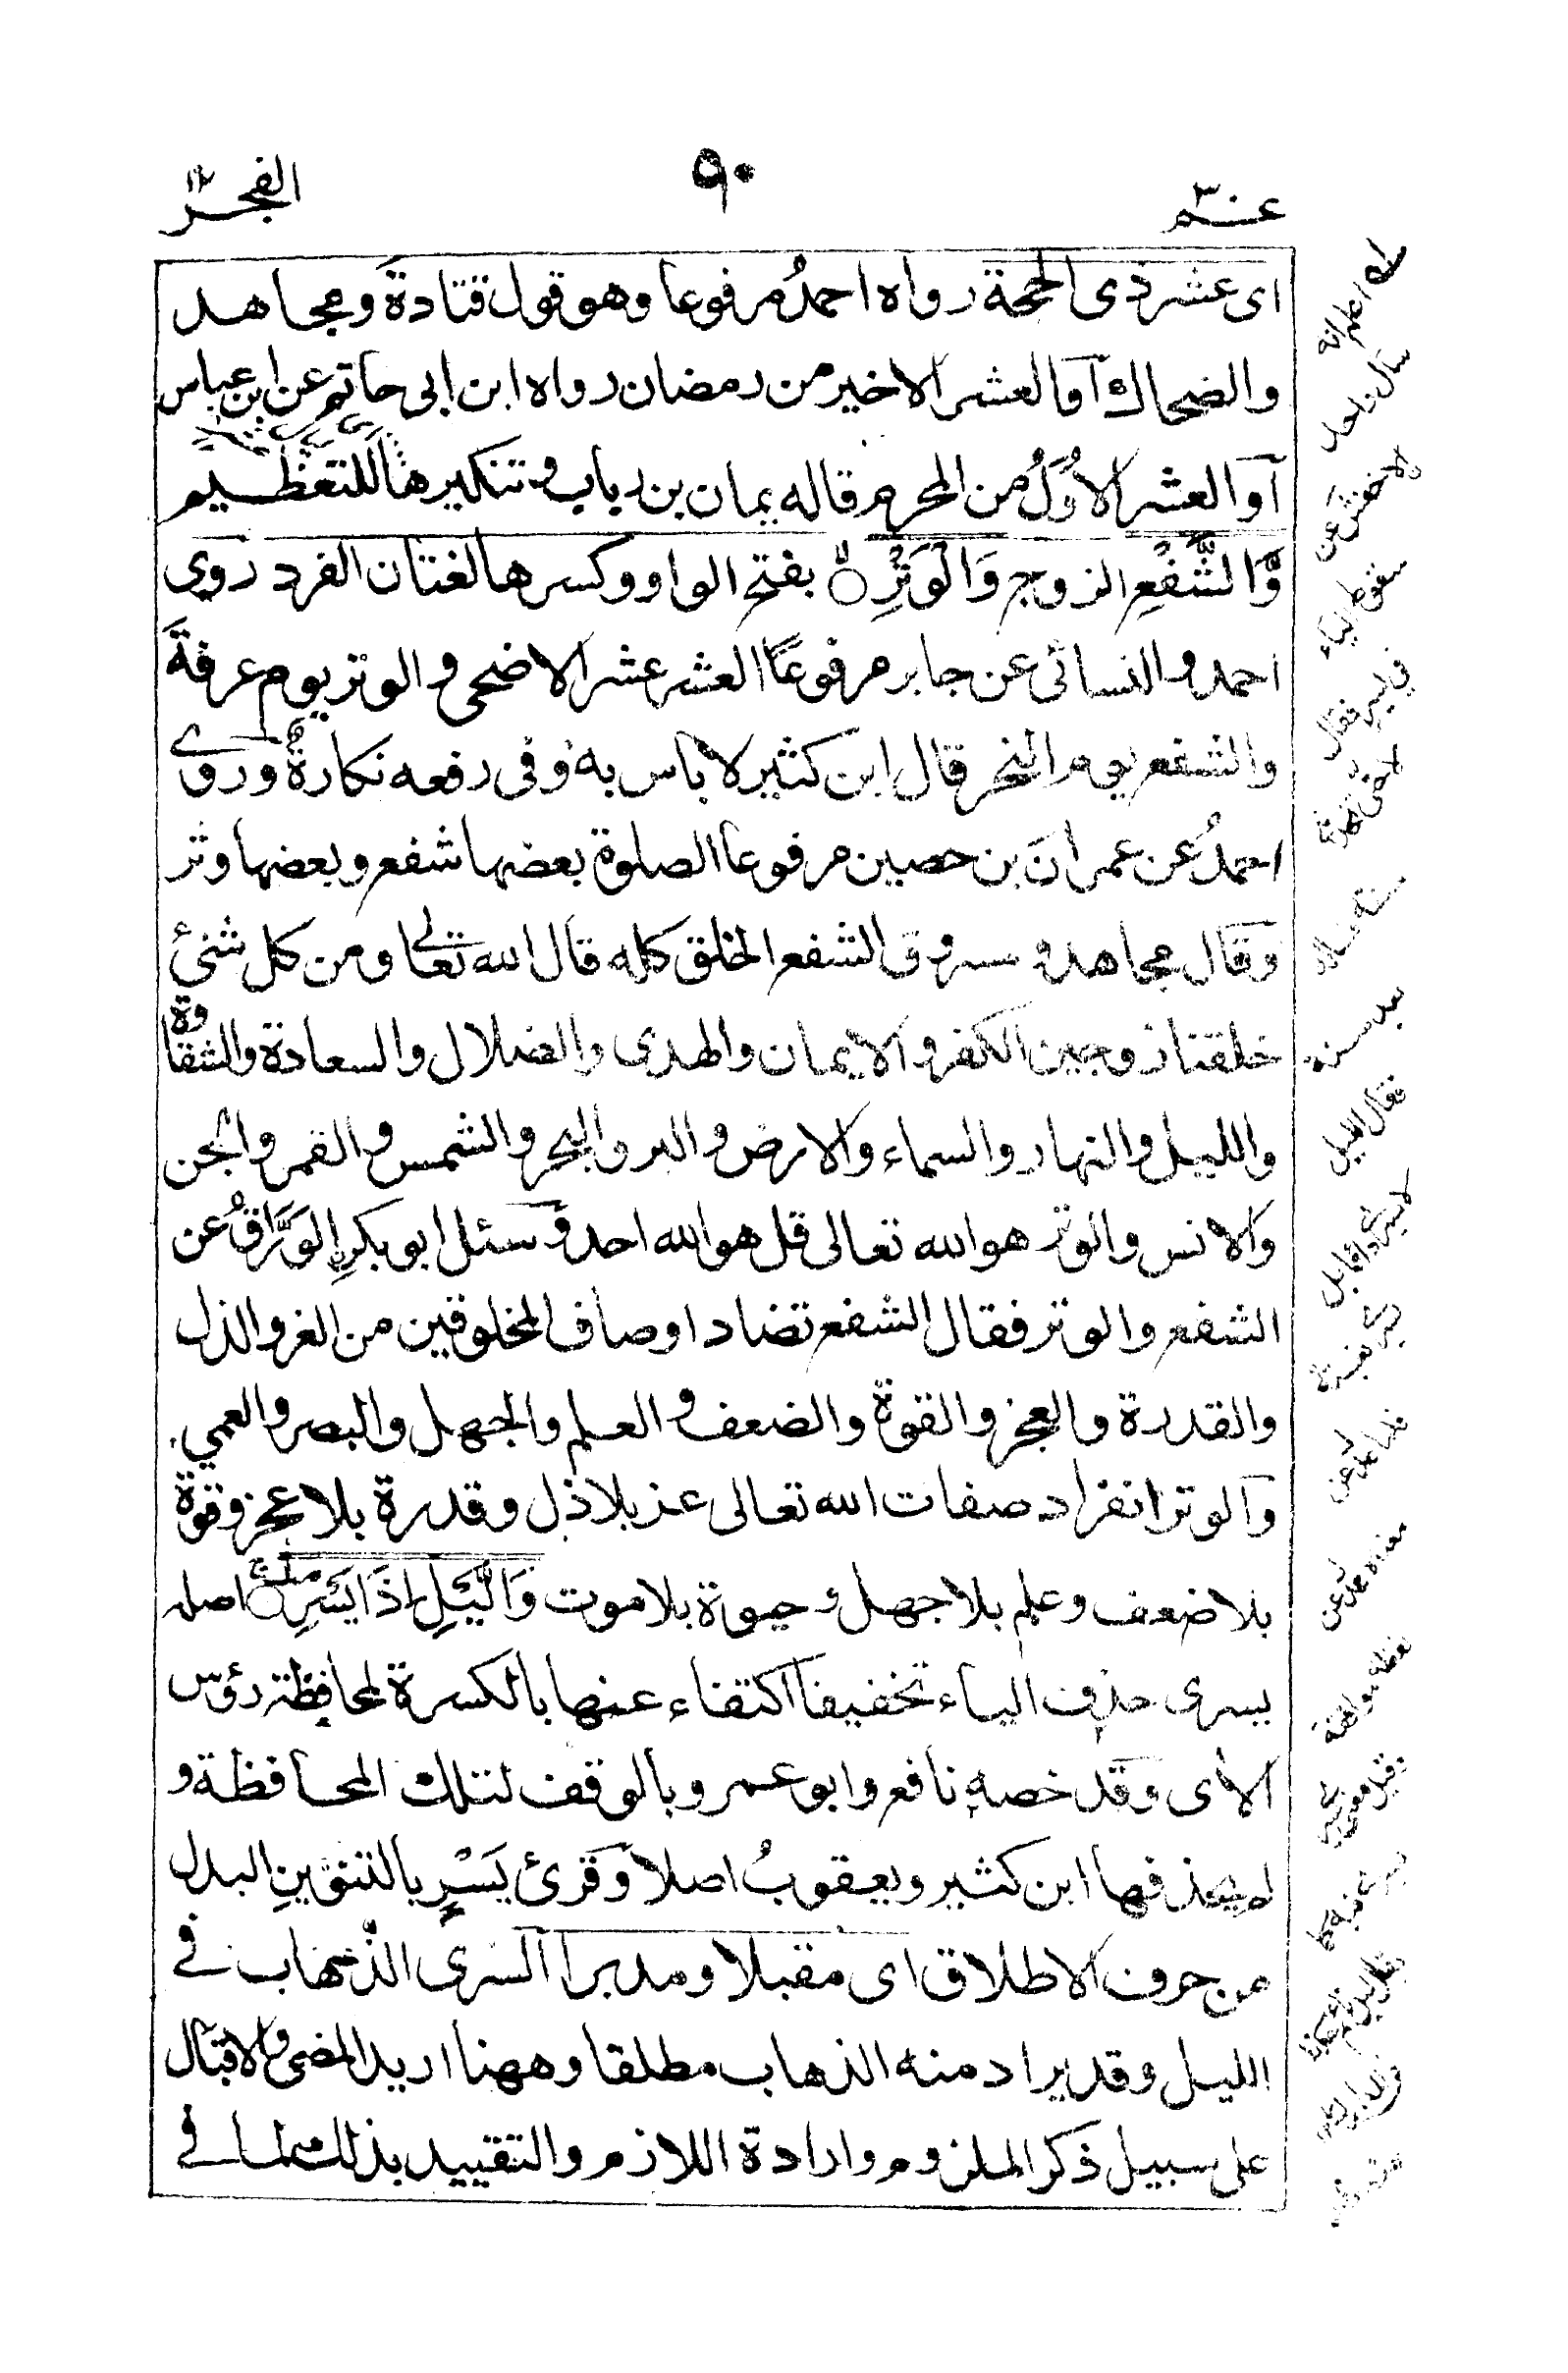 عم ٣٠
٩٠
الفجر
اى عشر ذى الحجة رواه احمدُ مرفوعا وهو قول قتادةَ ومجاهد
والضحاك آو العشر الاخير من رمضان رواه ابن ابى حاتم عن ابن عباس
آو العشر الاُوَلُ من المحرم قاله يمان بن رياب و تنكيرها للتعظيم
وَّالشَّفْعِ الزوج وَالْوَتْرِ بفتح الواو وكسرها لغتان الفرد روي
احمد والنسائى عن جابر مرفوعًا العشر عشر الاضحى والوتر يوم عرفةَ
والشفع يوم النحر قال ابن كثير لا باس به وفى رفعه نكارةٌ وروے
احمدُ عن عمرانَ بن حصين مرفوعا الصلوة بعضها شفع وبعضها وتر
وقال مجاهد و مسروق الشفع الخلق كله قال الله تعالى ومن كل شئ
خلقنا زوجين الكفر والايمان والهدى والضلال والسعادة والشقاوة
والليل والنهار والسماء والارض والبر والبحر والشمس والقمر والجن
والانس والوتر هو الله تعالى قل هو الله احد وسئل ابو بكرِ الوَرَّاقُ عن
الشفع والوتر فقال الشفع تضاد اوصاف المخلوقين من العز والذل
والقدرة والعجز والقوة والضعف و العلم والجهل والبصر والعمي
وآلوتر انفراد صفات الله تعالى عز بلا ذل وقدرة بلا عجز وقوة
بلا ضعف وعلم بلا جهل وحيوة بلا موت وَالَّيْلِ اِذَا يَسْرِ اصله
يسرى حذف الياء تخفيفا اكتفاء عنها بالكسرة لمحافظة رؤس
الاٰى وقد خصه نافع وابو عمرو بالوقف لتلك المحافظة و
لم يحذفها ابن كثير ويعقوبُ اصلا وقرئ يَسْرٍ بالتنوينِ البدل
من حرف الاطلاق اى مقبلا ومدبرا آلسرى الذهاب فے
الليل وقد يراد منه الذهاب مطلقا وههنا اريد المضى والاقبال
على سبيل ذكر الملزوم وارادة اللازم والتقييد بذلك لما فے
سأل واحد
الاخفش عن
سقوط الياء
فقال
فقال الليل